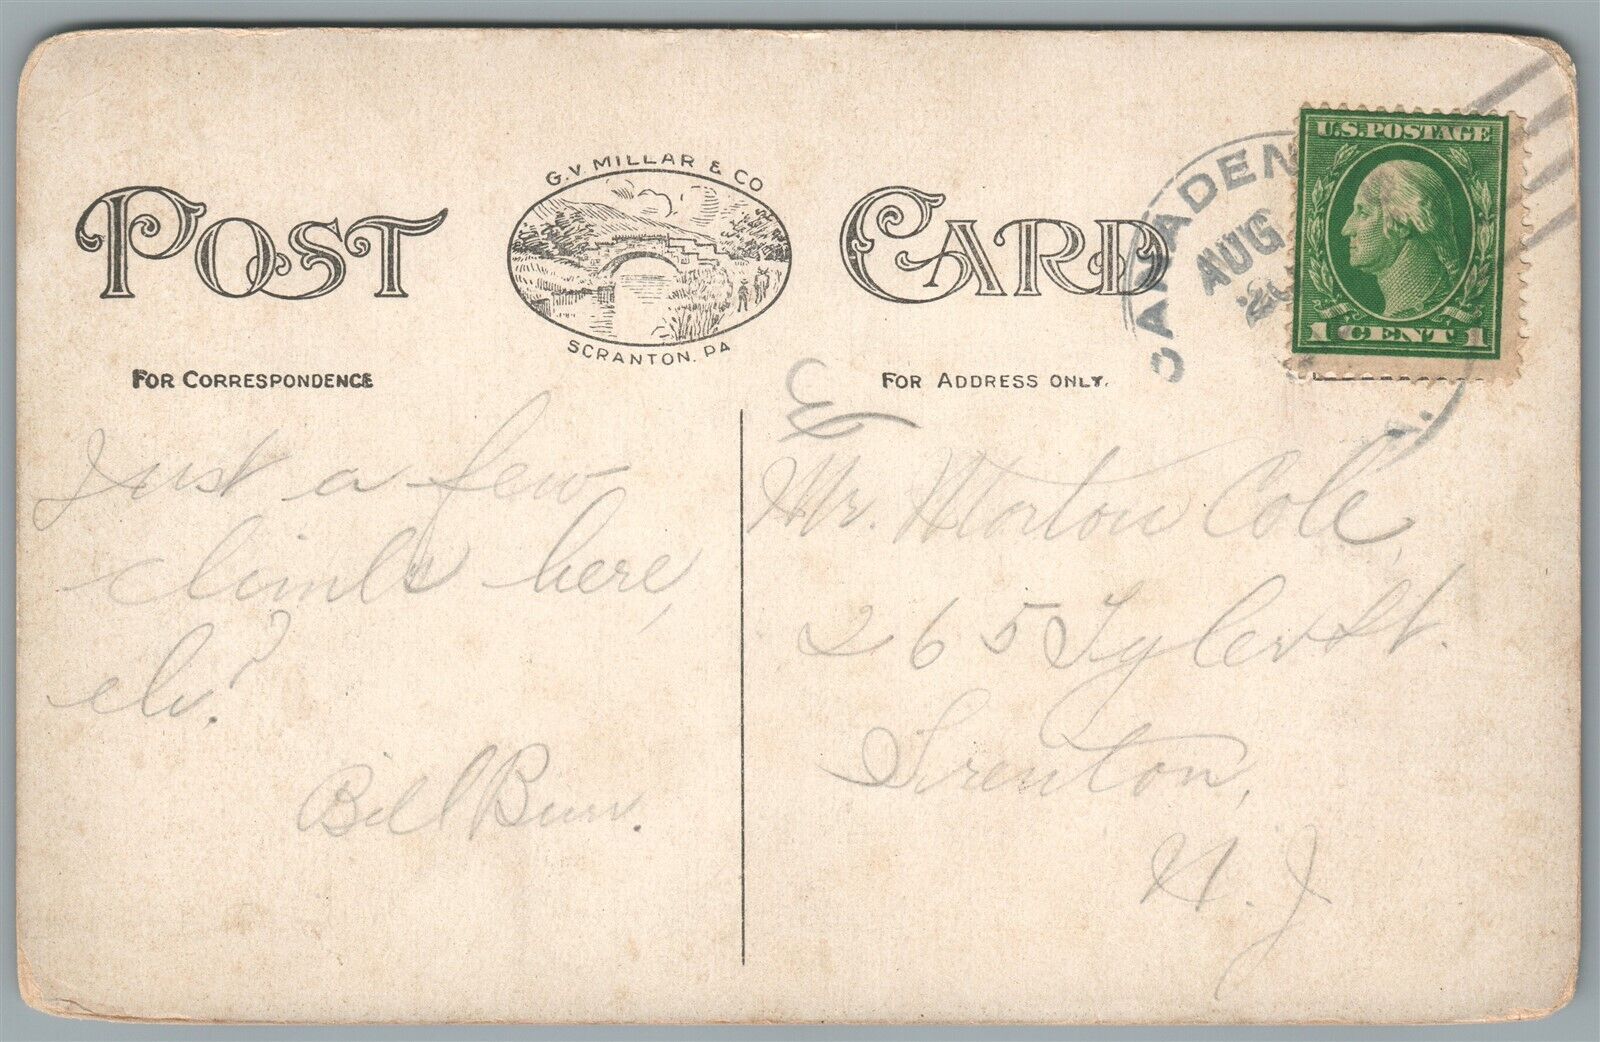 POST CARD
G. V. MILLAR & CO
SCRANTON, PA
FOR CORRESPONDENCE
FOR ADDRESS ONLY.
CANADEN
AUG
U.S. POSTAGE
1 CENT 1
Just a few
climbs here,
eh?
Bill Burr.
Mr. Morton Cole,
265 Tyler St.
Trenton,
N. J.